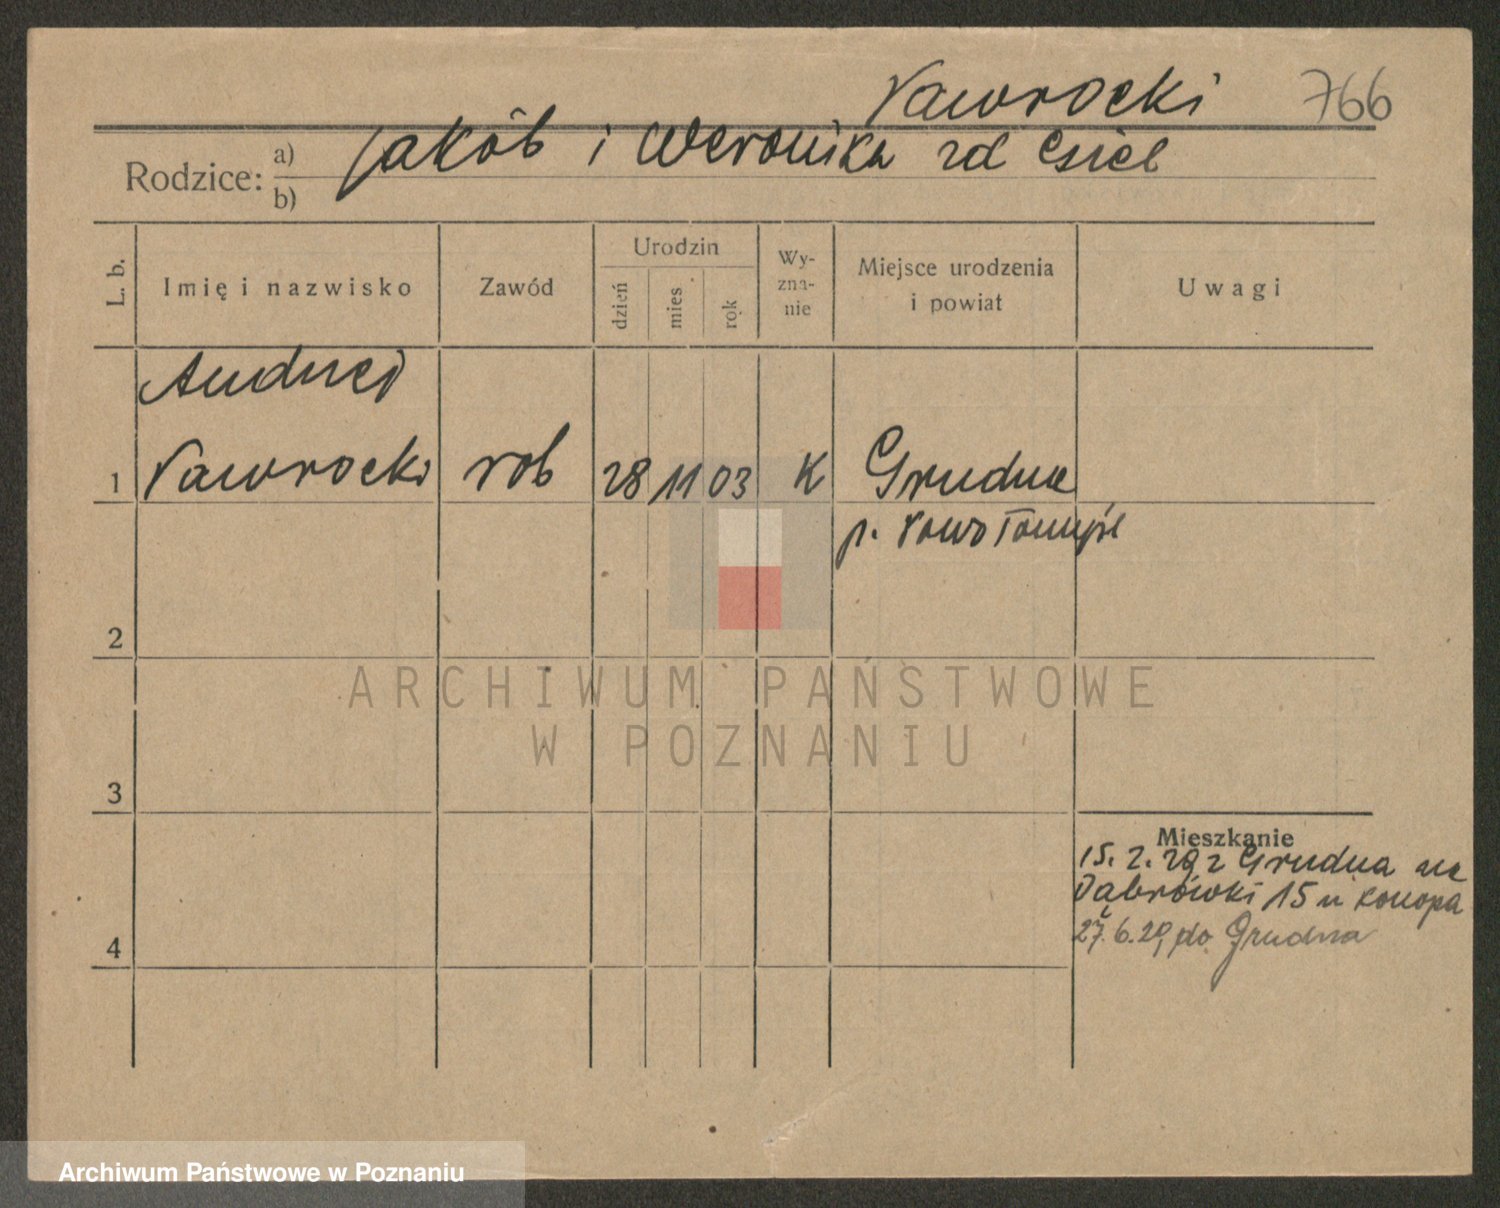 Nawrocki 766
Rodzice: a) Jakób i Weronika zd Csiel
b)
L. b. Imię i nazwisko Zawód Urodzin dzień mies. rok Wy-zna-nie Miejsce urodzenia i powiat Uwagi
Andrzej
1 Nawrocki rob 28 11 03 K Grudna
p. Nowotomyśl
2
3
4
ARCHIWUM PAŃSTWOWE
W POZNANIU
Mieszkanie
15. 2. 29 z Grudna na
Dąbrówki 15 u Konopa
27. 6. 29 do Grudna
Archiwum Państwowe w Poznaniu